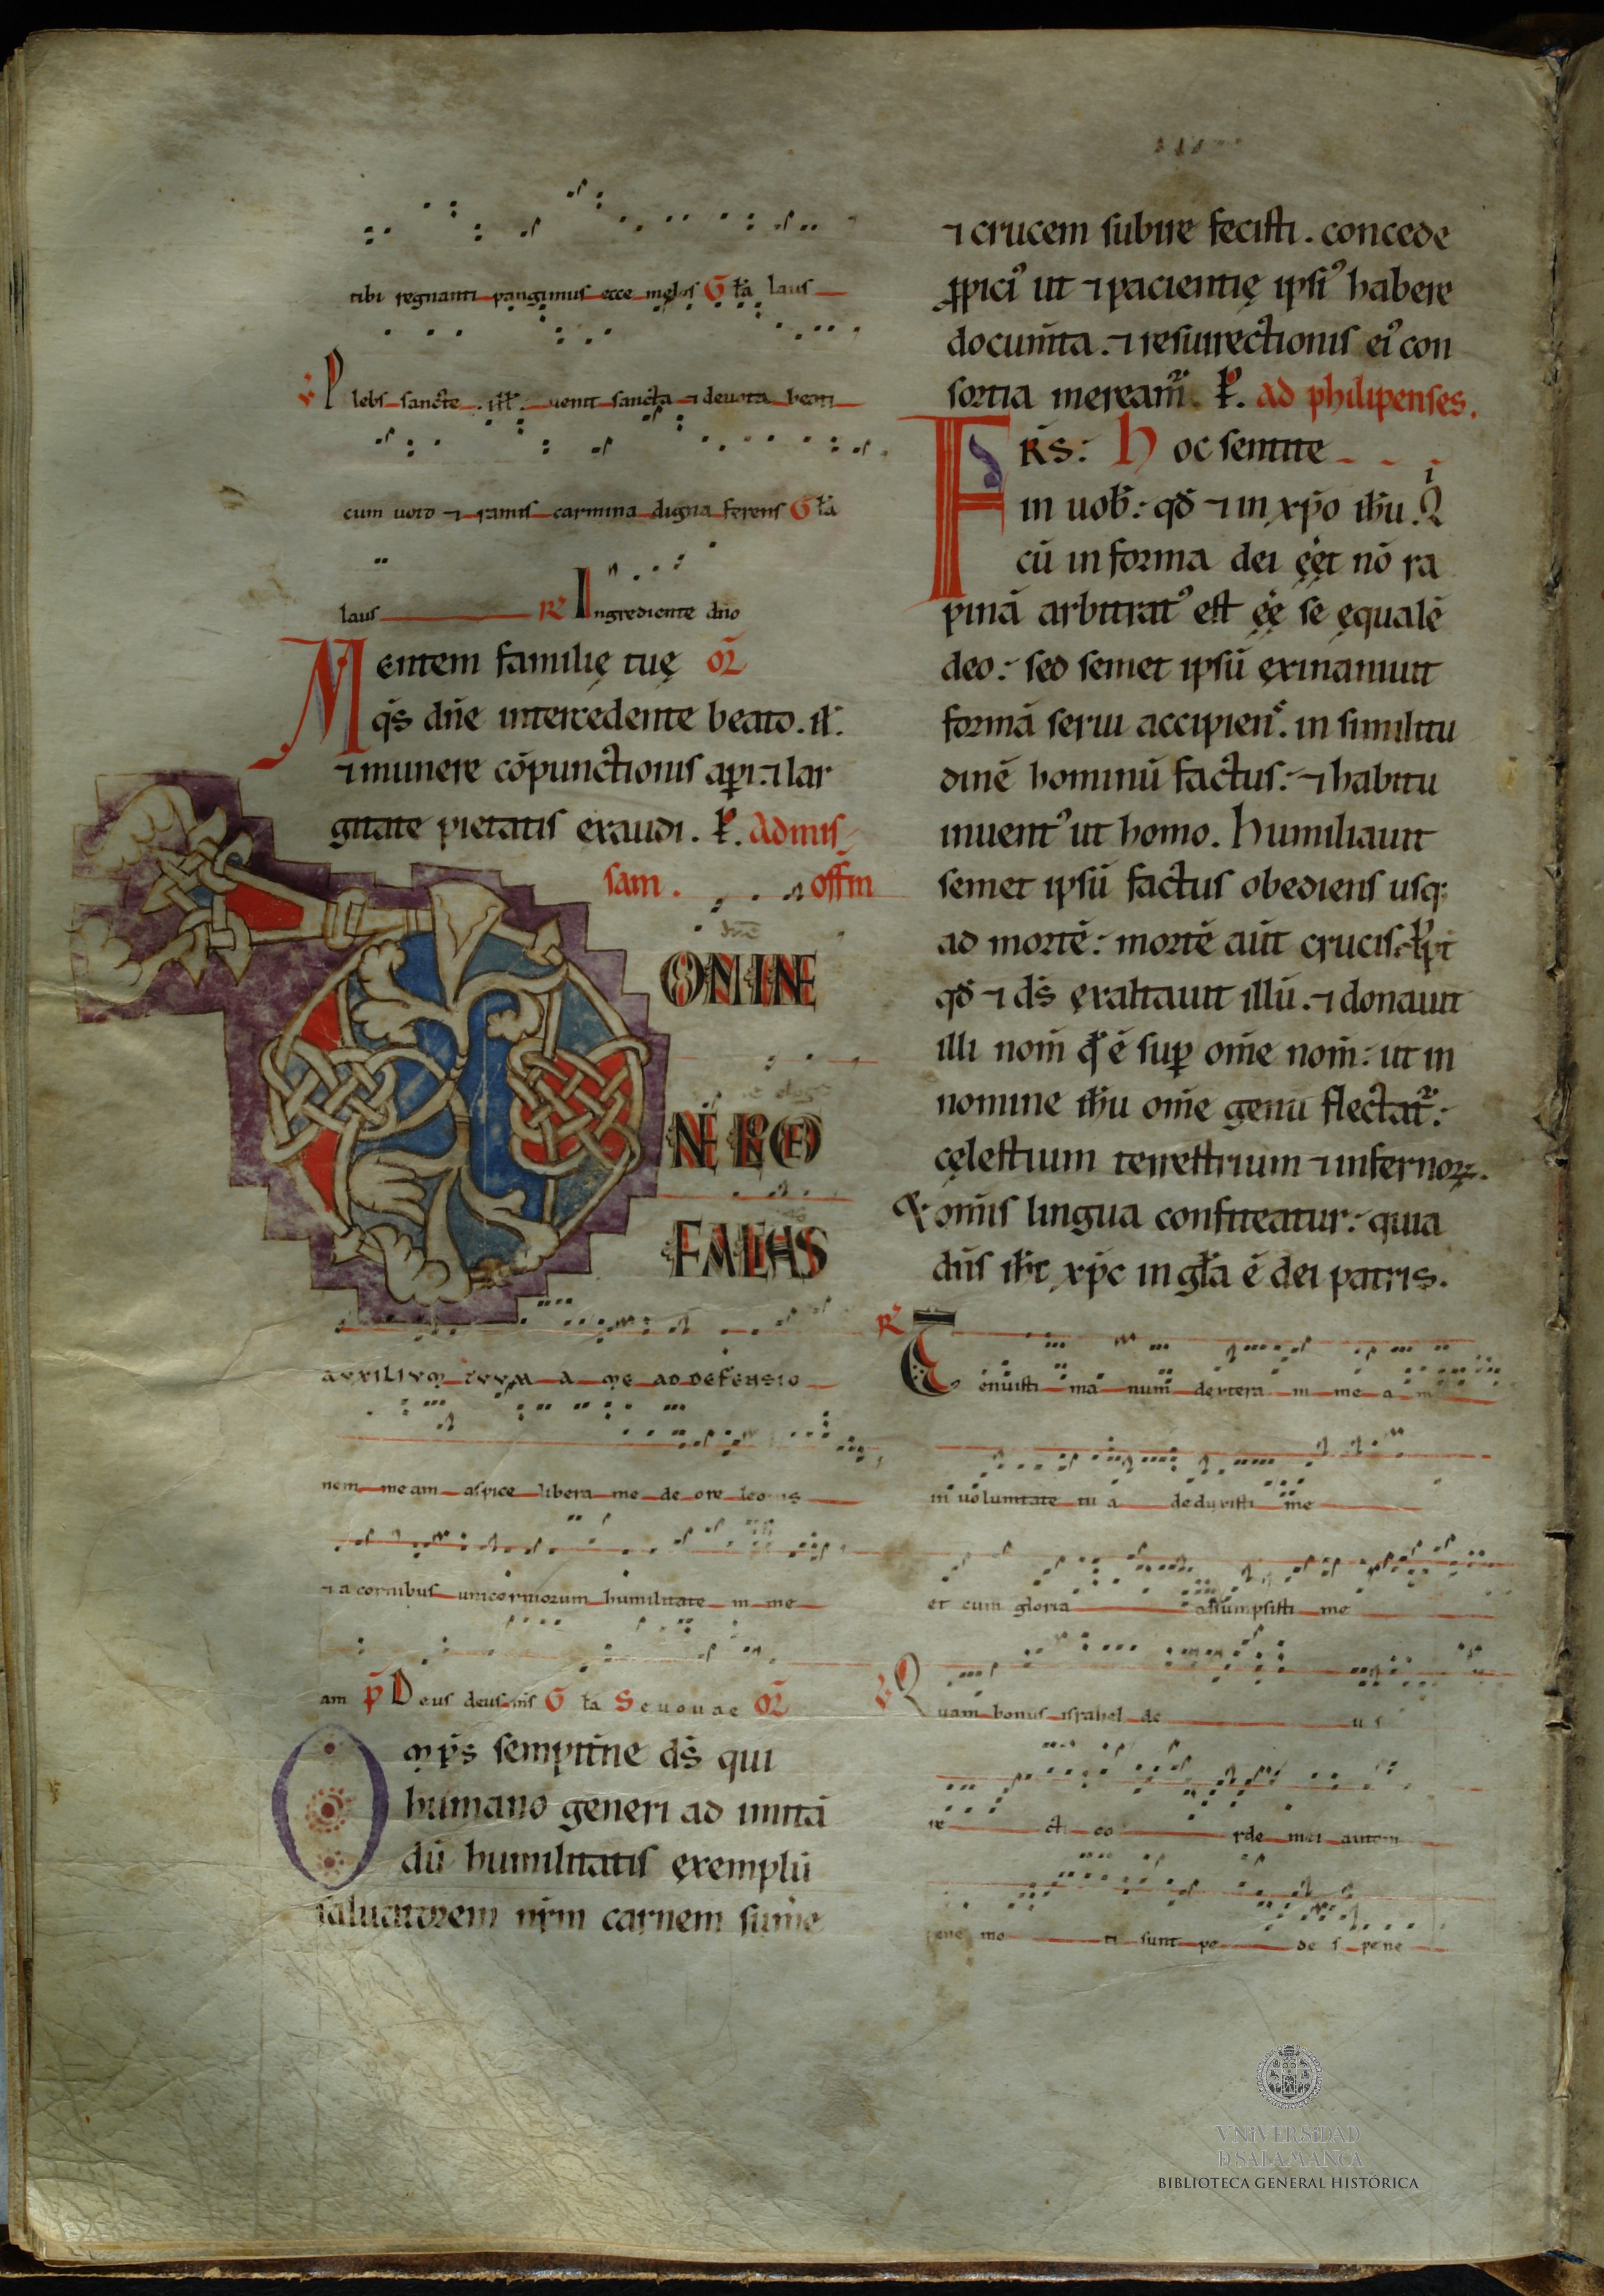 tibi regnanti pangimus ecce melos G̅ l̅a laus
V Plebs sancte .ill̅. uenit sancta ⁊ deuota beati
cum uoto ⁊ ramis carmina digna ferens G̅ l̅a
laus R̅ Ingrediente dn̅o
Mentem familię tuę or̅
q̅s dn̅e intercedente beato .il̅.
⁊ munere co̅punctionis aꝑi ⁊ lar
gitate pietatis exaudi . P̅. Ad mis
sam . off̅m
DOMINE
NE LO
NGE
FACIAS
AUXILIUM TUUM A ME AD DEFENSIO
nem meam aspice libera me de ore leonis
⁊ a cornibus unicorniorum humilitate m me
am p̅ Deus deus m̅s G̅ l̅a Seuouae or̅
Omp̅s sempit̅ne ds̅ qui
humano generi ad imita̅
du̅ humilitatis exemplu̅
saluatorem nr̅m carnem sum̅e
⁊ crucem subire fecisti . concede
ꝓpiciꝰ ut ⁊ pacientię ipsiꝰ habere
docum̅ta . ⁊ resurrectionis eiꝰ con
sortia meream̅ . P̅. ad philipenses.
FR̅S: Hoc sentite
in uob̅: qd̅ ⁊ in xp̅o ih̅u . Qi
cu̅ in forma dei ęe̅t no̅ ra
pina̅ arbitratꝰ est ęe̅ se ęquale̅
deo: sed semet ipsu̅ exinaniuit
forma̅ serui accipien̅s . in similitu
dine̅ hominu̅ factus: ⁊ habitu
inuentꝰ ut homo . Humiliauit
semet ipsu̅ factus obediens usq;
ad morte̅: morte̅ au̅t crucis. P̅pt̅
qd̅ ⁊ ds̅ exaltauit illu̅ . ⁊ donauit
illi nom̅ qd̅ e̅ suꝑ om̅e nom̅: ut in
nomine ih̅u om̅e genu flectat̅:
cęlestium terrestrium ⁊ infernoꝝ.
& om̅is lingua confiteatur: quia
dn̅s ih̅c xp̅c in gl̅a e̅ dei patris.
R̅ Tenuisti ma num dextera m me a m
in uoluntate tu a deduxisti me
et cum gloria assumpsisti me
V Quam bonus israhel de us
re cti co rde mei autem
pene mo ti sunt pe de s pene
VNiVERSiDAD
D SALAMANCA
BIBLIOTECA GENERAL HISTÓRICA